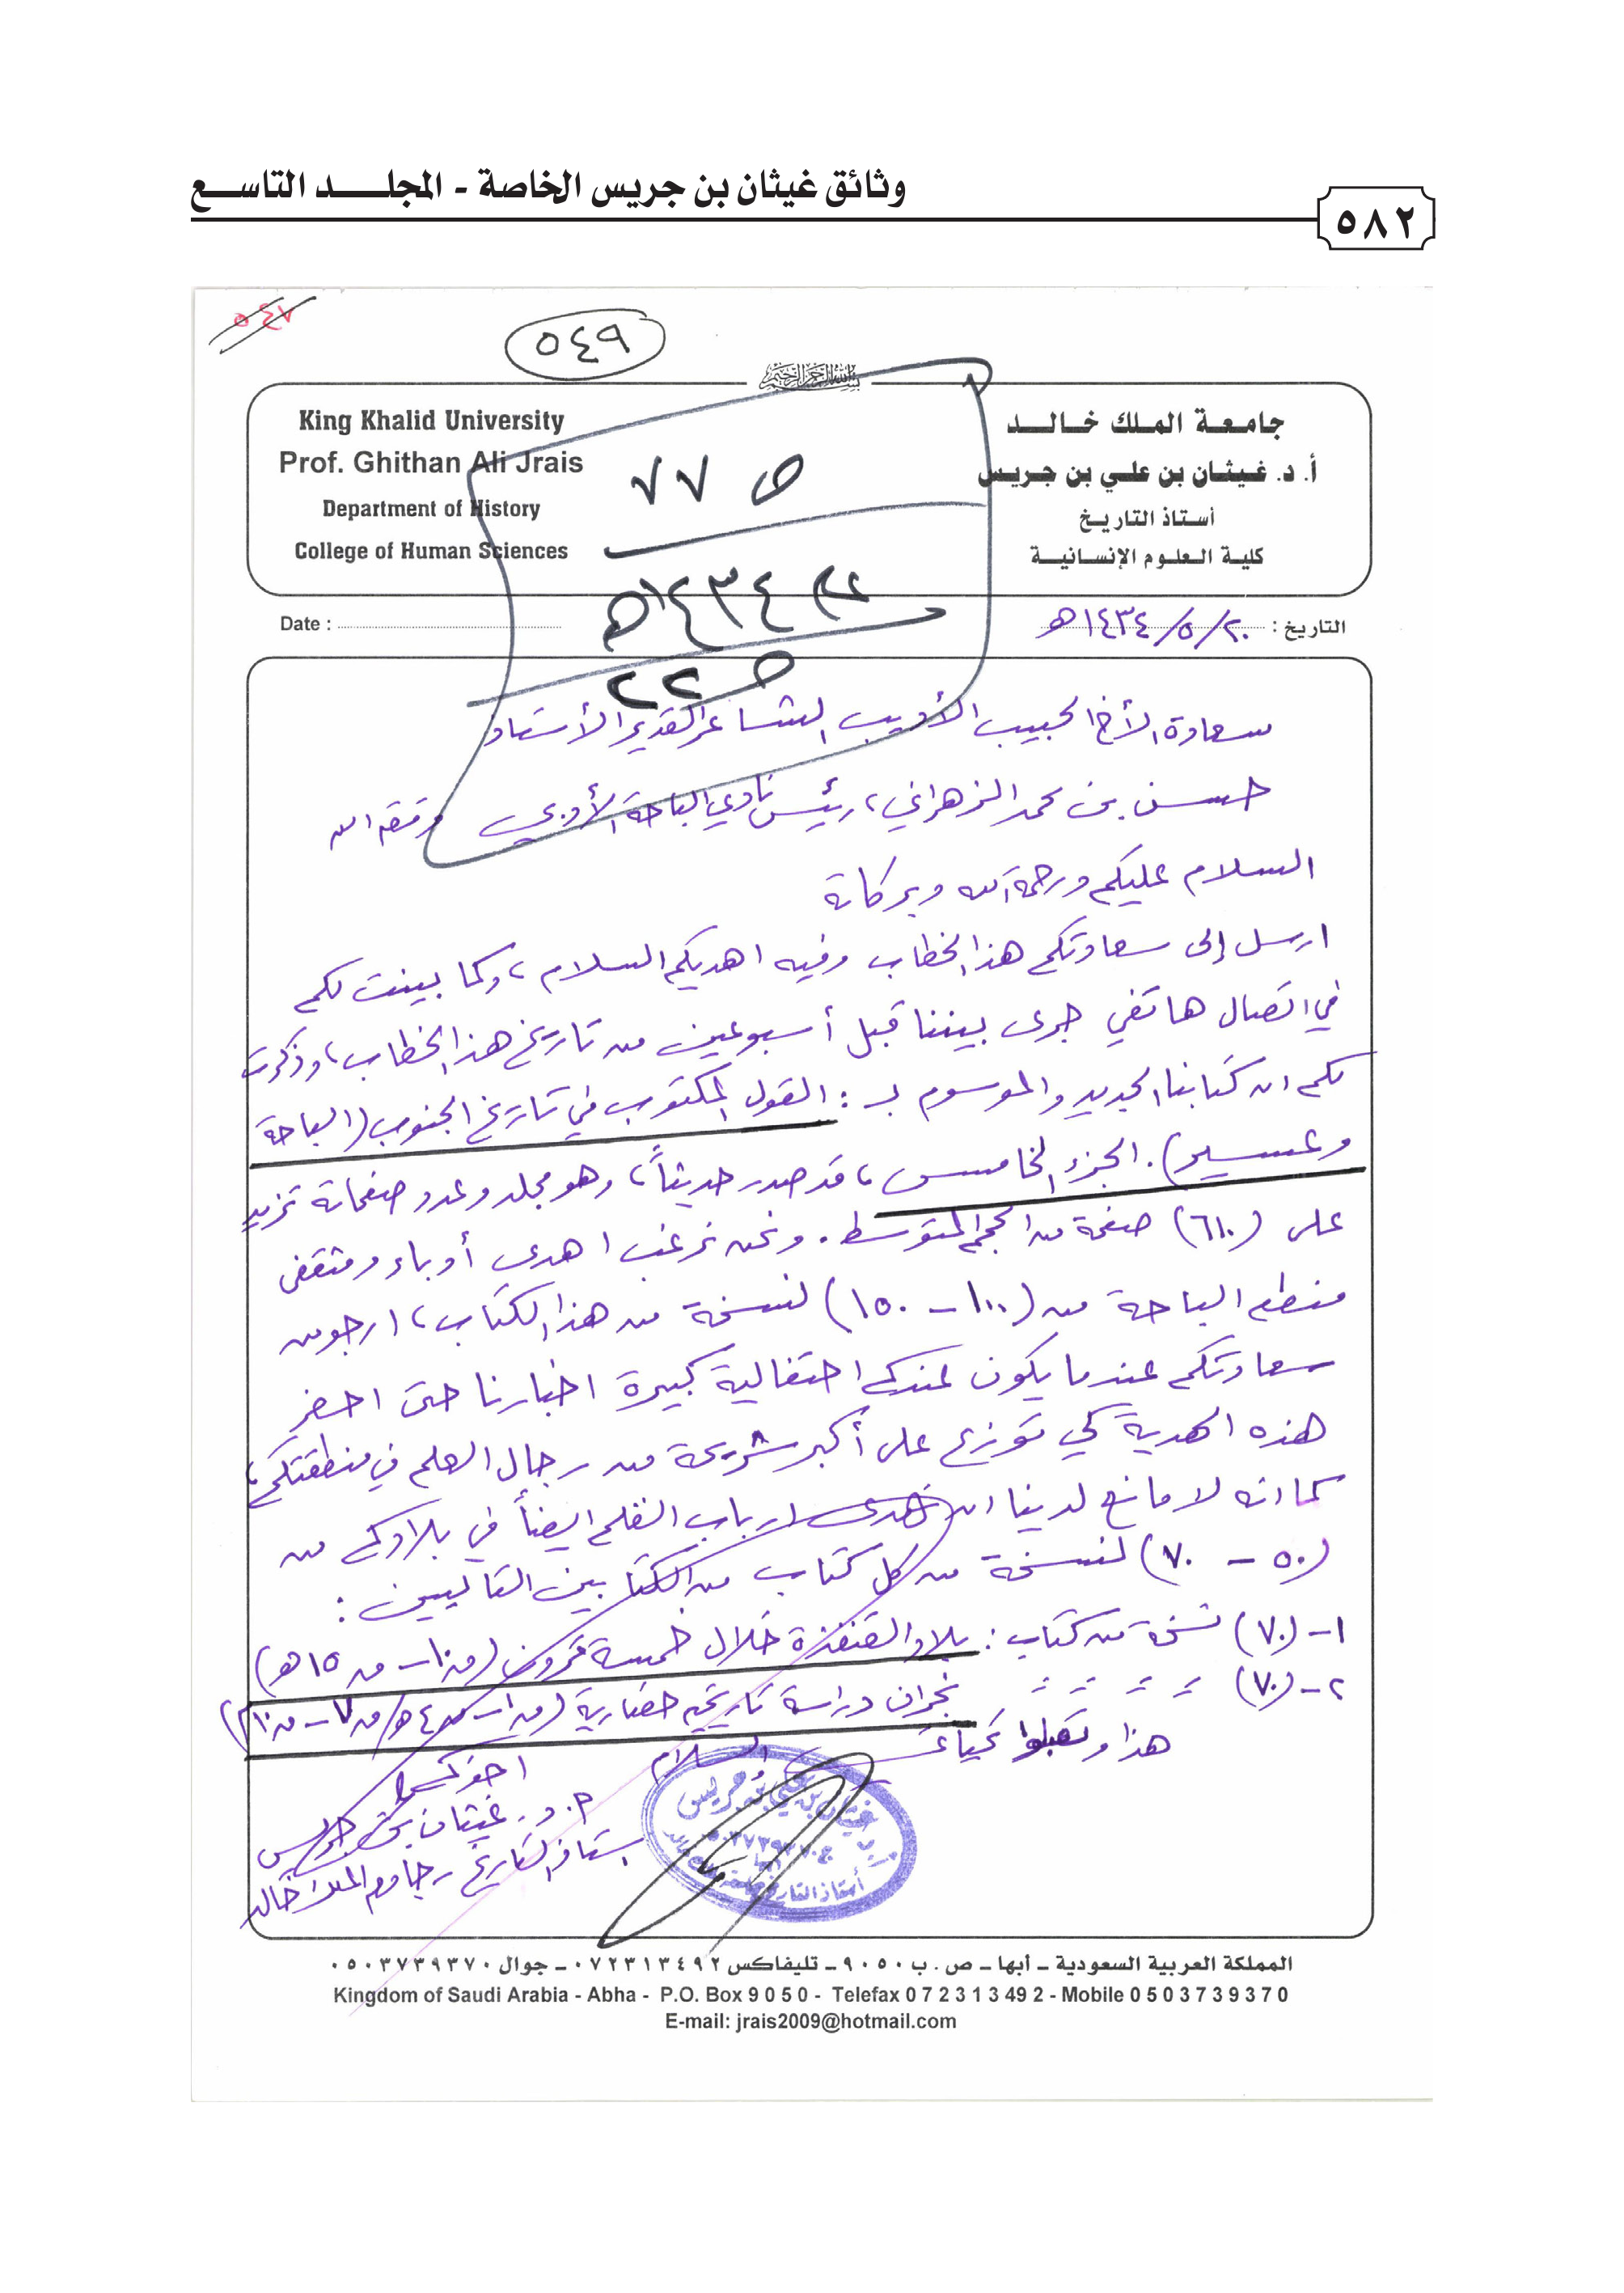 وثائق غيثان بن جريس الخاصة - المجلد التاسع
٥٨٢
٥٤٧
٥٤٩
بسم الله الرحمن الرحيم
King Khalid University
Prof. Ghithan Ali Jrais
Department of History
College of Human Sciences
جامعة الملك خالد
أ. د. غيثان بن علي بن جريس
أستاذ التاريخ
كلية العلوم الإنسانية
ص ٧٧
١٤٣٤هـ
ص ٢٢
Date :
التاريخ : ٢٠/٥/١٤٣٤هـ
سعادة الأخ الحبيب الأديب الشاعر القدير الأستاذ
حسن بن محمد الزهراني، رئيس نادي الباحة الأدبي وفقه الله
السلام عليكم ورحمة الله وبركاته
ارسل إلى سعادتكم هذا الخطاب وفيه اهديكم السلام، وكما بينت لكم
في اتصال هاتفي جرى بيننا قبل أسبوعين من تاريخ هذا الخطاب، وذكرت
لكم ان كتابنا الجديد والموسوم بـ : القول المكتوب في تاريخ الجنوب (الباحة
وعسير). الجزء الخامس، قد صدر حديثاً، وهو مجلد وعدد صفحاته تزيد
على (٦١٠) صفحة من الحجم المتوسط. ونحن نرغب اهدى أدباء ومثقفى
منطقة الباحة من (١٠٠ - ١٥٠) نسخة من هذا الكتاب، ارجو من
سعادتكم عندما يكون عندكم احتفالية كبيرة اخبارنا حتى احضر
هذه الهدية كي توزع على أكبر شريحة من رجال العلم في منطقتكم،
كما انه لا مانع لدينا ان نهدى ارباب القلم ايضاً في بلادكم من
(٥٠ - ٧٠) نسخة من كل كتاب من الكتابين التاليين :
١- (٧٠) نسخة من كتاب : بلاد القنفذة خلال خمسة قرون (ق١٠ - ق١٥هـ)
٢- (٧٠) = = = = نجران دراسة تاريخية حضارية (ق١ - ق٤هـ/ق٧ - ق١٠م)
هذا وتقبلوا تحياتي والسلام
اخوكم
أ. د. غيثان بن جريس
استاذ التاريخ بجامعة الملك خالد
غيثان بن علي بن جريس
ج ٠٥٠٣٧٣٩٣٧٠
أبها
أستاذ التاريخ بجامعة الملك خالد
المملكة العربية السعودية – أبها – ص. ب ٩٠٥٠ – تليفاكس ٠٧٢٣١٣٤٩٢ – جوال ٠٥٠٣٧٣٩٣٧٠
Kingdom of Saudi Arabia - Abha - P.O. Box 9 0 5 0 - Telefax 0 7 2 3 1 3 49 2 - Mobile 0 5 0 3 7 3 9 3 7 0
E-mail: jrais2009@hotmail.com